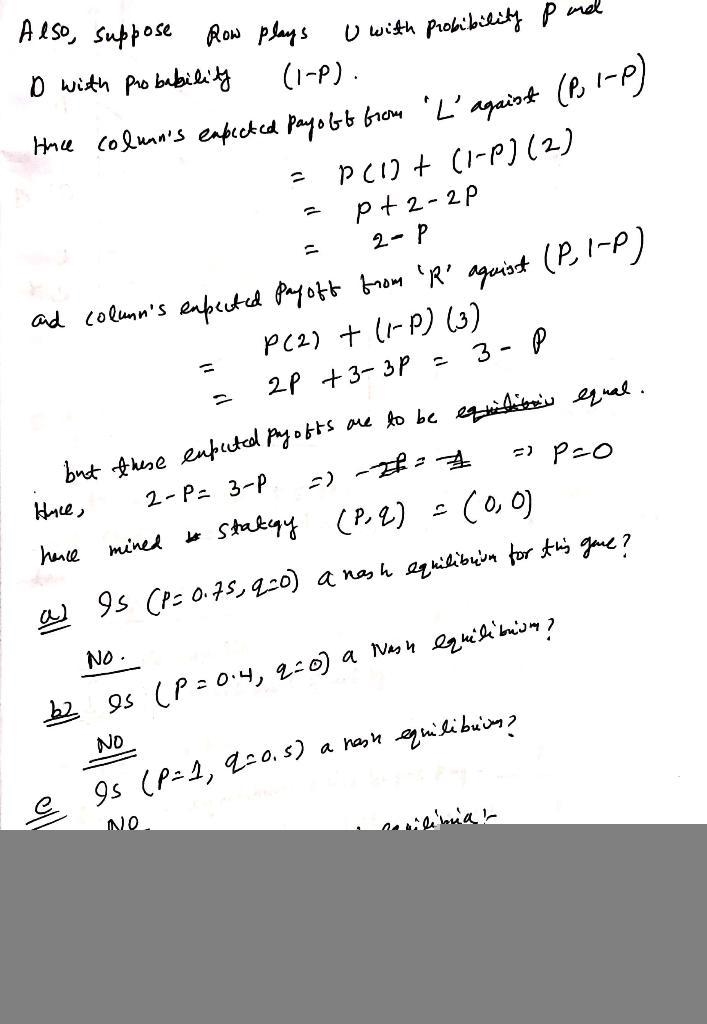 Also, suppose Row plays U with probibility p and
D with probability (1-P).
Hnce column's enpected payobb from 'L' against (P, 1-P)
= P(1) + (1-P)(2)
= P+2-2P
= 2-P
and column's enpected payobb from 'R' against (P, 1-P)
= P(2) + (1-P)(3)
= 2P +3-3P = 3-P
but these enpected payobbs are to be equal.
Hnce, 2-P = 3-P => => P=0
hence mined stategy (P,q) = (0,0)
a) Is (P=0.75, q=0) a nash equilibrium for this game?
No.
b) Is (P=0.4, q=0) a Nash equilibrium?
NO
c Is (P=1, q=0.5) a nash equilibrium?
NO